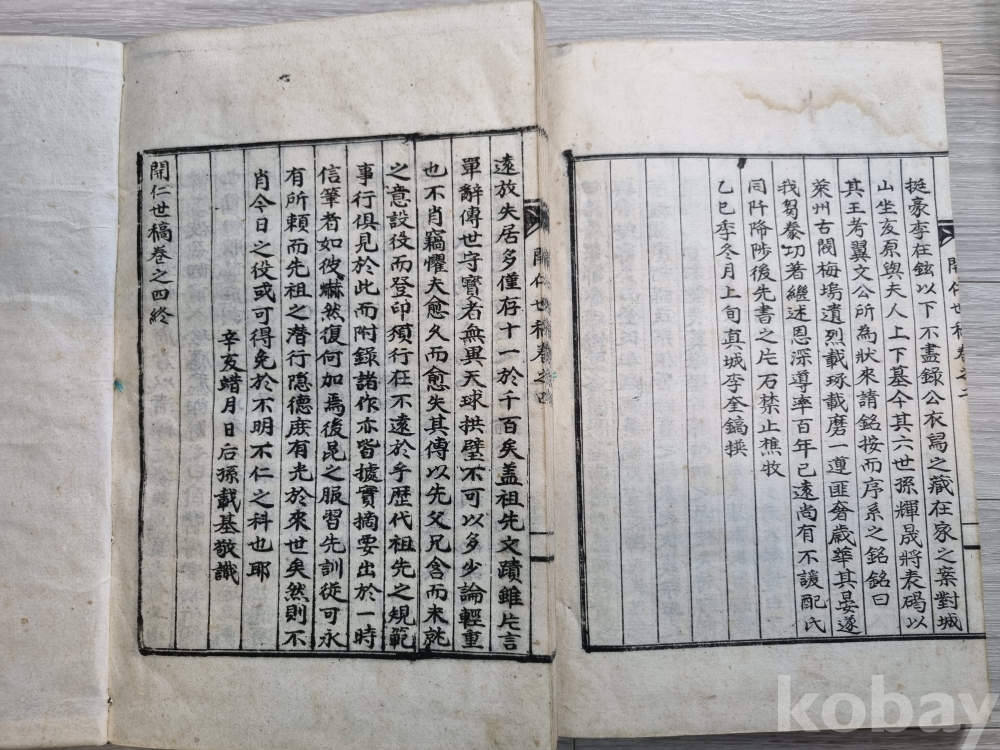 挺豪李在鉉以下不盡錄公衣舄之藏在家之案對城
山坐亥原與夫人上下墓今其六世孫輝晟將表碣以
其王考翼文公所為狀來請銘按而序系之銘銘曰
萊州古閥梅塢遺烈載琢載磨一遵匪奢歲華其晏遂
我芻豢功著繼述恩深導率百年已遠尚有不諼配氏
同阡降陟後先書之片石禁止樵牧
乙巳季冬月上旬真城李奎鎬撰
開仁世稿卷之二
遠放失居多僅存十一於千百矣盖祖先文蹟雖片言
單辭傳世守寶者無異天球拱璧不可以多少論輕重
也不肖竊懼夫愈久而愈失其傳以先父兄含而未就
之意設役而登印須行在不遠於乎歷代祖先之規範
事行俱見於此而附錄諸作亦皆據實摘要出於一時
信筆者如彼赫然復何加焉後昆之服習先訓從可永
有所賴而先祖之潜行隐德庶有光於來世矣然則不
肖今日之役或可得免於不明不仁之科也耶
辛亥蜡月日后孫載基敬識
開仁世稿卷之四終
開仁世稿卷之四
kobay